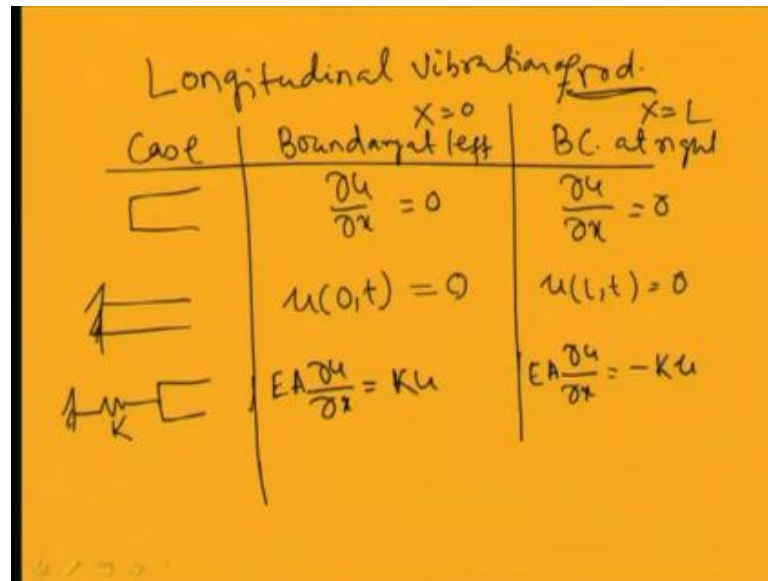 Longitudinal Vibration of rod.
Case | Boundary at left X=0 | B.C. at right X=L
∂u/∂x = 0 | ∂u/∂x = 0
u(0,t) = 0 | u(l,t) = 0
K | EA ∂u/∂x = Ku | EA ∂u/∂x = -Ku